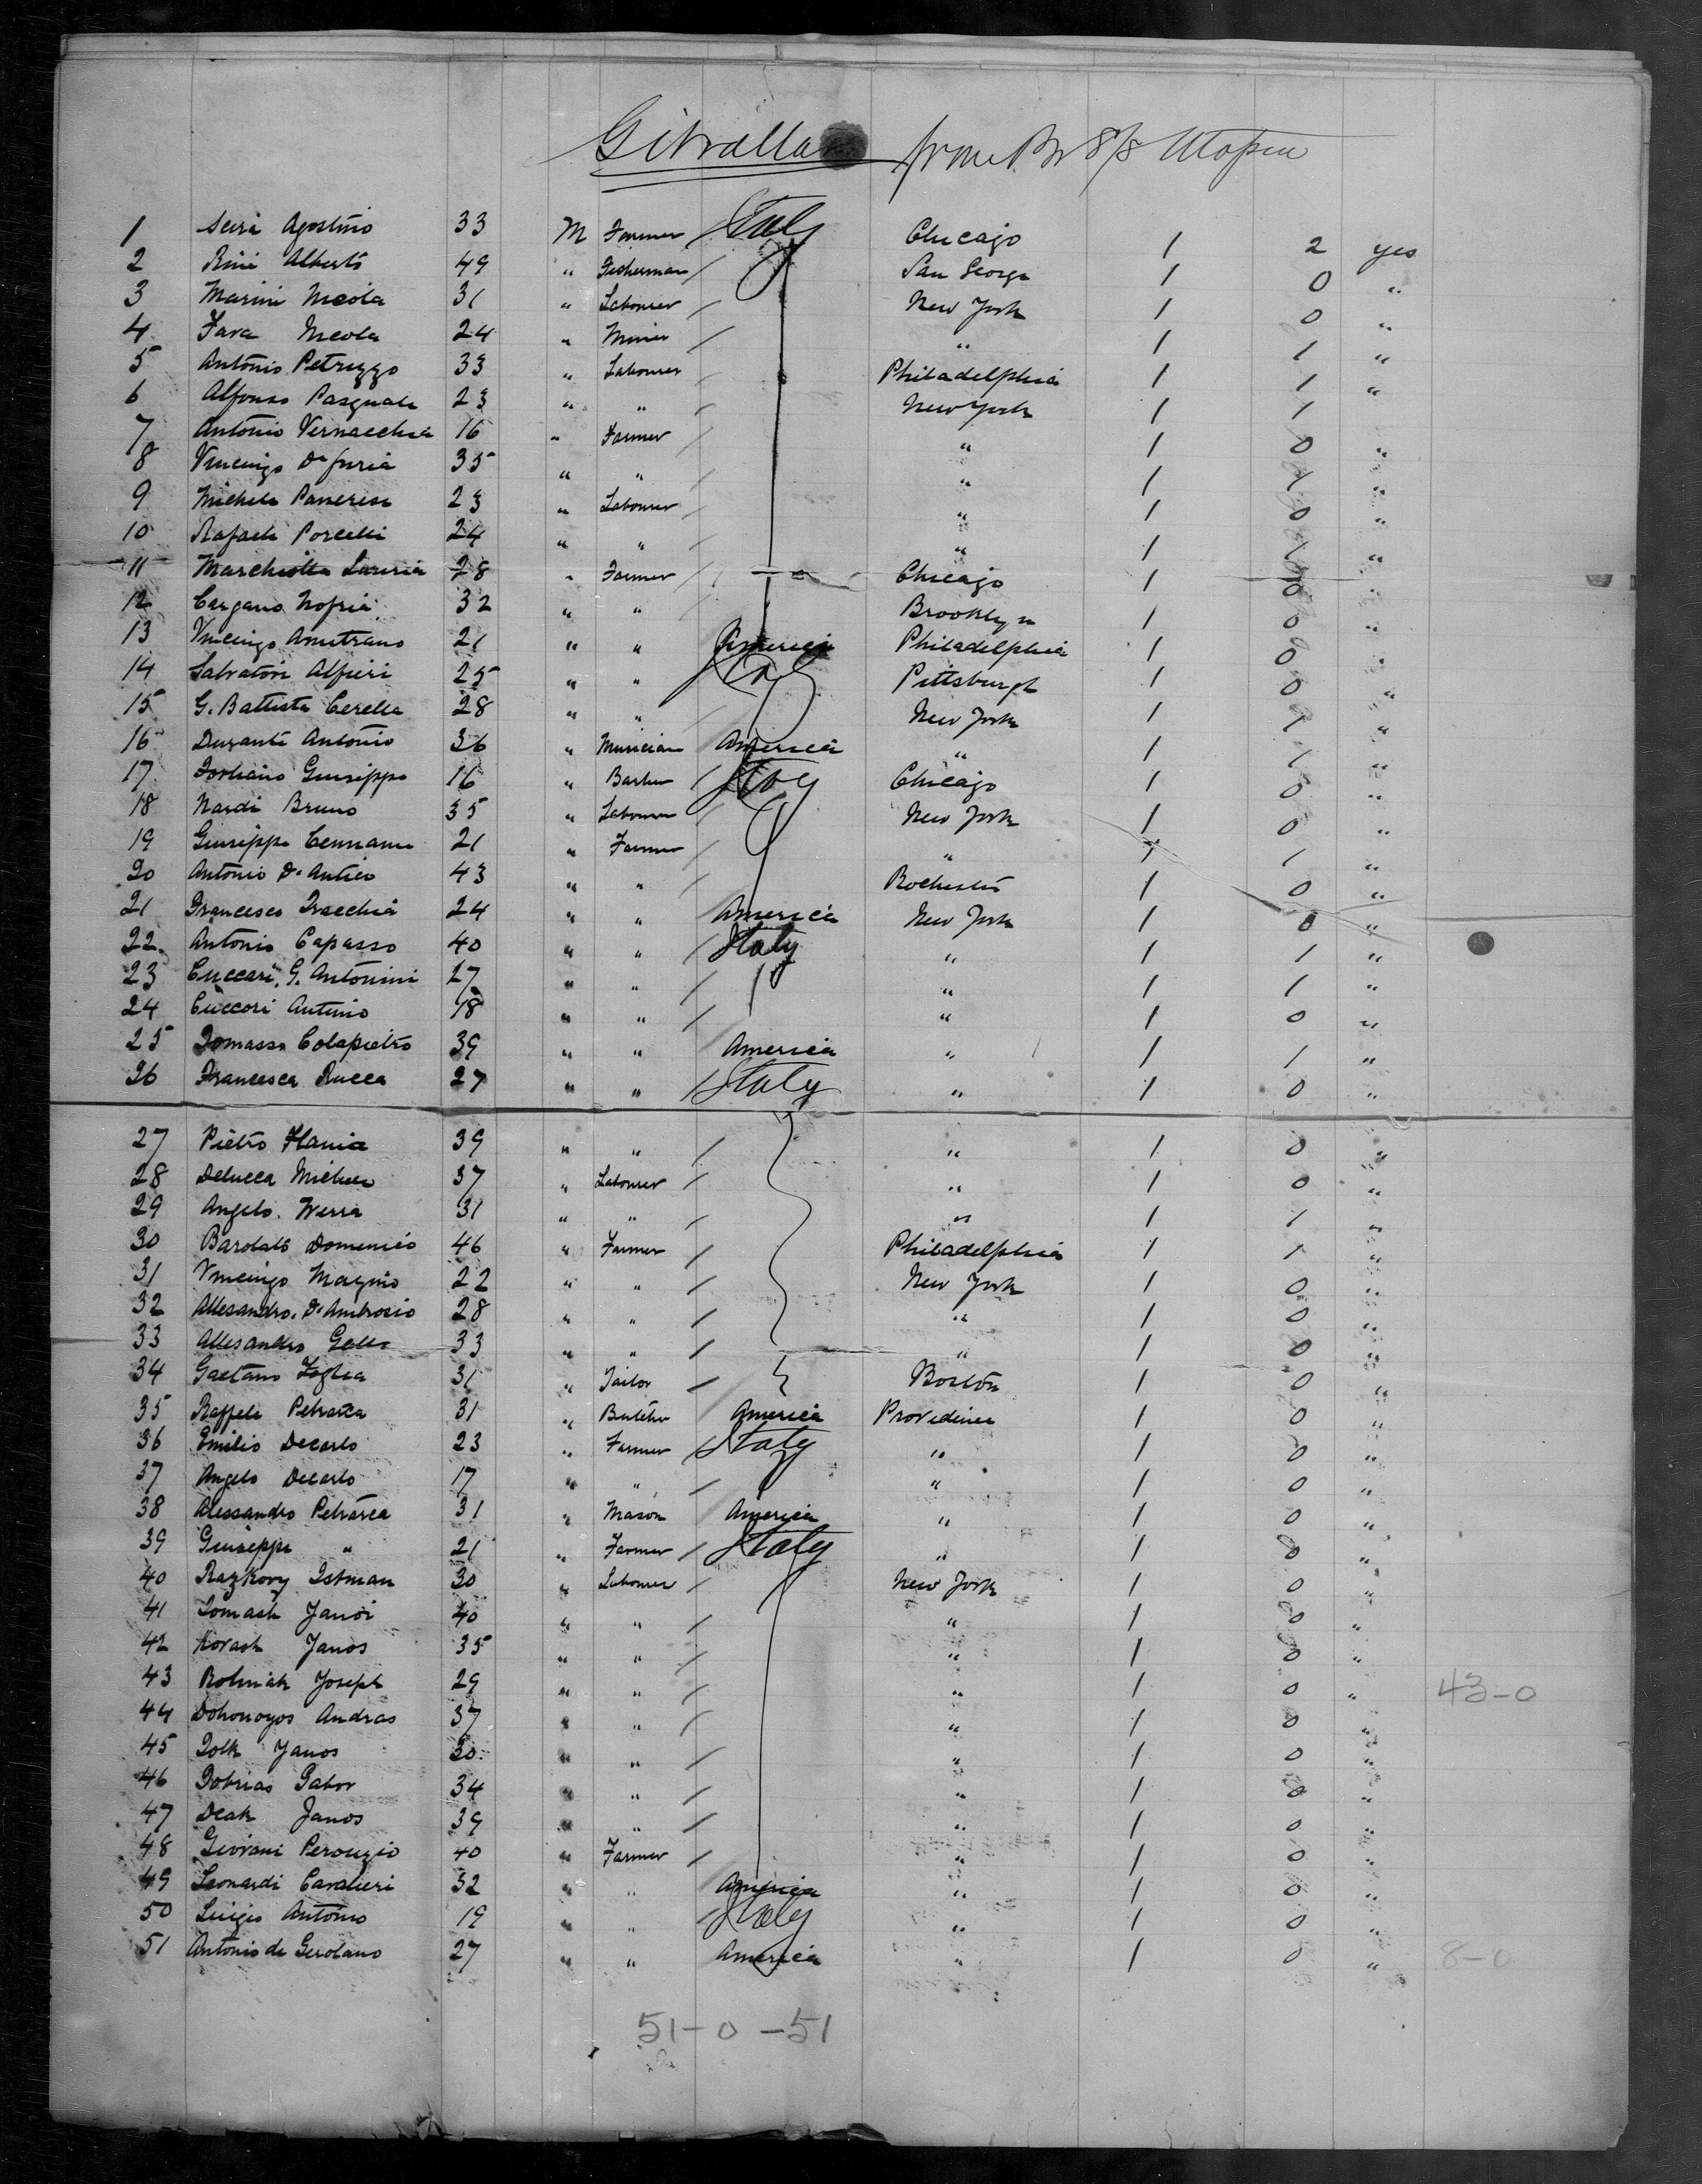 Gibraltar from Br S/S Utopia
1 Seira Agostino 33 M Farmer / Italy Chicago 1 2 yes
2 Rini Alberto 49 " Fisherman / San George 1 0 "
3 Marini Nicola 31 " Labourer / New York 1 0 "
4 Fava Nicola 24 " Miner / " 1 1 "
5 Antonio Petruzzo 33 " Labourer / Philadelphia 1 1 "
6 Alfonso Pasquale 23 " " / New York 1 1
7 Antonio Vernacchia 16 " Farmer / " 1 0 "
8 Vincenzo Defuria 35 " " / " 1 1 "
9 Michele Panerese 23 " Labourer / " 1 0 "
10 Rafaele Porcelli 24 " " / " 1 1 "
11 Marchiotta Lauria 28 " Farmer / Chicago 1 0 "
12 Cargano Nofria 32 " " / Brooklyn 1 0 "
13 Vincenzo Amitrano 21 " " America Philadelphia 1 0 "
14 Salvatore Alfieri 25 " " Italy Pittsburgh 1 0 "
15 G. Battista Cerella 28 " " / New York 1 1 "
16 Durante Antonio 36 " Musician America " 1 1 "
17 Giuseppe 16 " Barber / Italy Chicago 1 0 "
18 Nardi Bruno 35 " Labourer / New York 1 0 "
19 Giuseppe Cennamo 21 " Farmer / " 1 1 "
20 Antonio D'Antico 43 " " / Rochester 1 0 "
21 Francesco Tracchia 24 " " America New York 1 0 "
22 Antonio Capasso 40 " " / Italy " 1 1 "
23 Cuccari G. Antonini 27 " " / " 1 1 "
24 Cuccori Antonio 18 " " / " 1 0 "
25 Tomasso Colapietro 39 " " America " 1 1 "
26 Francesca Rucca 27 " " / Italy " 1 0 "
27 Pietro Flania 39 " " / " 1 0 "
28 Delucca Michele 37 " Labourer / " 1 0 "
29 Angelo Werra 31 " " / " 1 1 "
30 Barolato Domenico 46 " Farmer / Philadelphia 1 1 "
31 Vincenzo Mazzino 22 " " / New York 1 0 "
32 Allesandro D'Ambrosio 28 " " / " 1 0 "
33 Allesandro Gallo 33 " " / " 1 0 "
34 Gaetano Foglia 31 " Tailor / Boston 1 0 "
35 Raffele Petrarca 31 " Butcher America Providence 1 0 "
36 Emilio Decarlo 23 " Farmer / Italy " 1 0 "
37 Angelo Decarlo 17 " " / " 1 0 "
38 Alessandro Petrarca 31 " Mason America " 1 0 "
39 Giuseppe " 21 " Farmer / Italy " 1 0 "
40 Razkovy Istman 30 " Labourer / New York 1 0 "
41 Lomash Janoi 40 " " / " 1 0 "
42 Kovash Janos 35 " " / " 1 0 "
43 Rolmiak Joseph 29 " " / " 1 0 " 43-0
44 Dohonoyos Andras 37 " " / " 1 0 "
45 Polk Janos 30 " " / " 1 0 "
46 Dobrias Gabor 34 " " / " 1 0 "
47 Deak Janos 39 " " / " 1 0 "
48 Giovani Perouzio 40 " Farmer / " 1 0 "
49 Leonardi Cavalieri 32 " " America " 1 0 "
50 Luigio Antonio 19 " " / Italy " 1 0 "
51 Antonio de Gerolano 27 " " America " 1 0 " 8-0
51-0-51